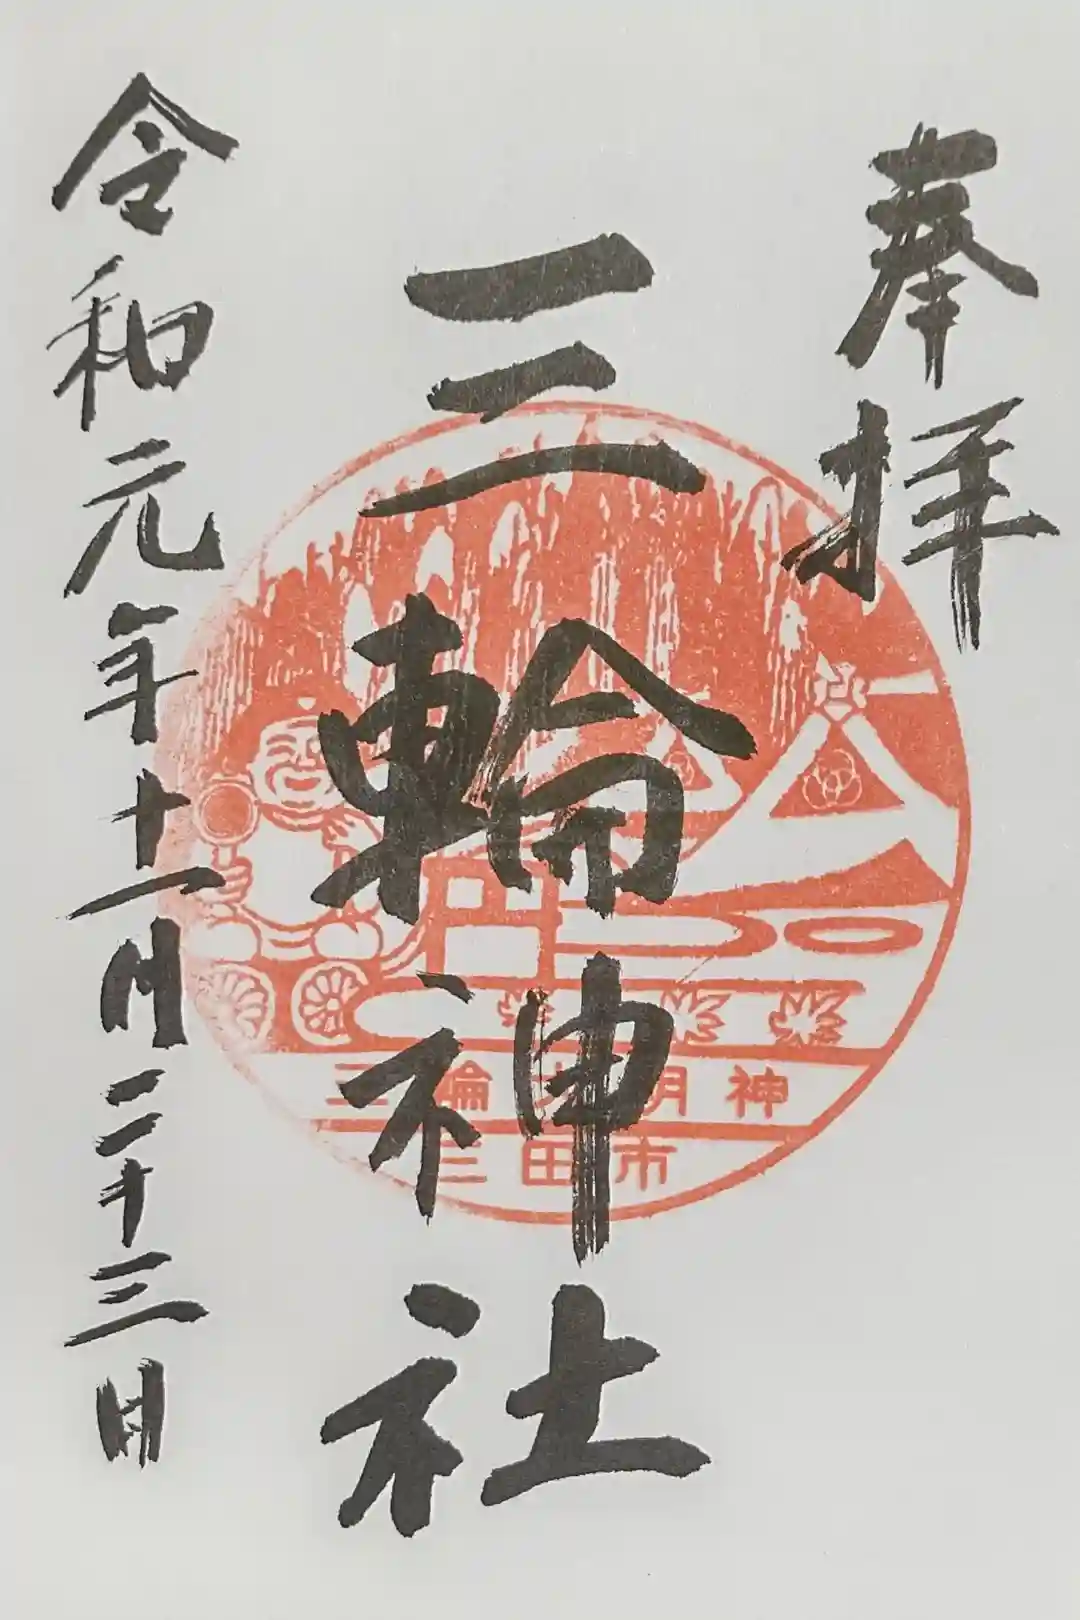 奉拝
三輪神社
令和元年十一月二十三日
三輪大明神
三田市